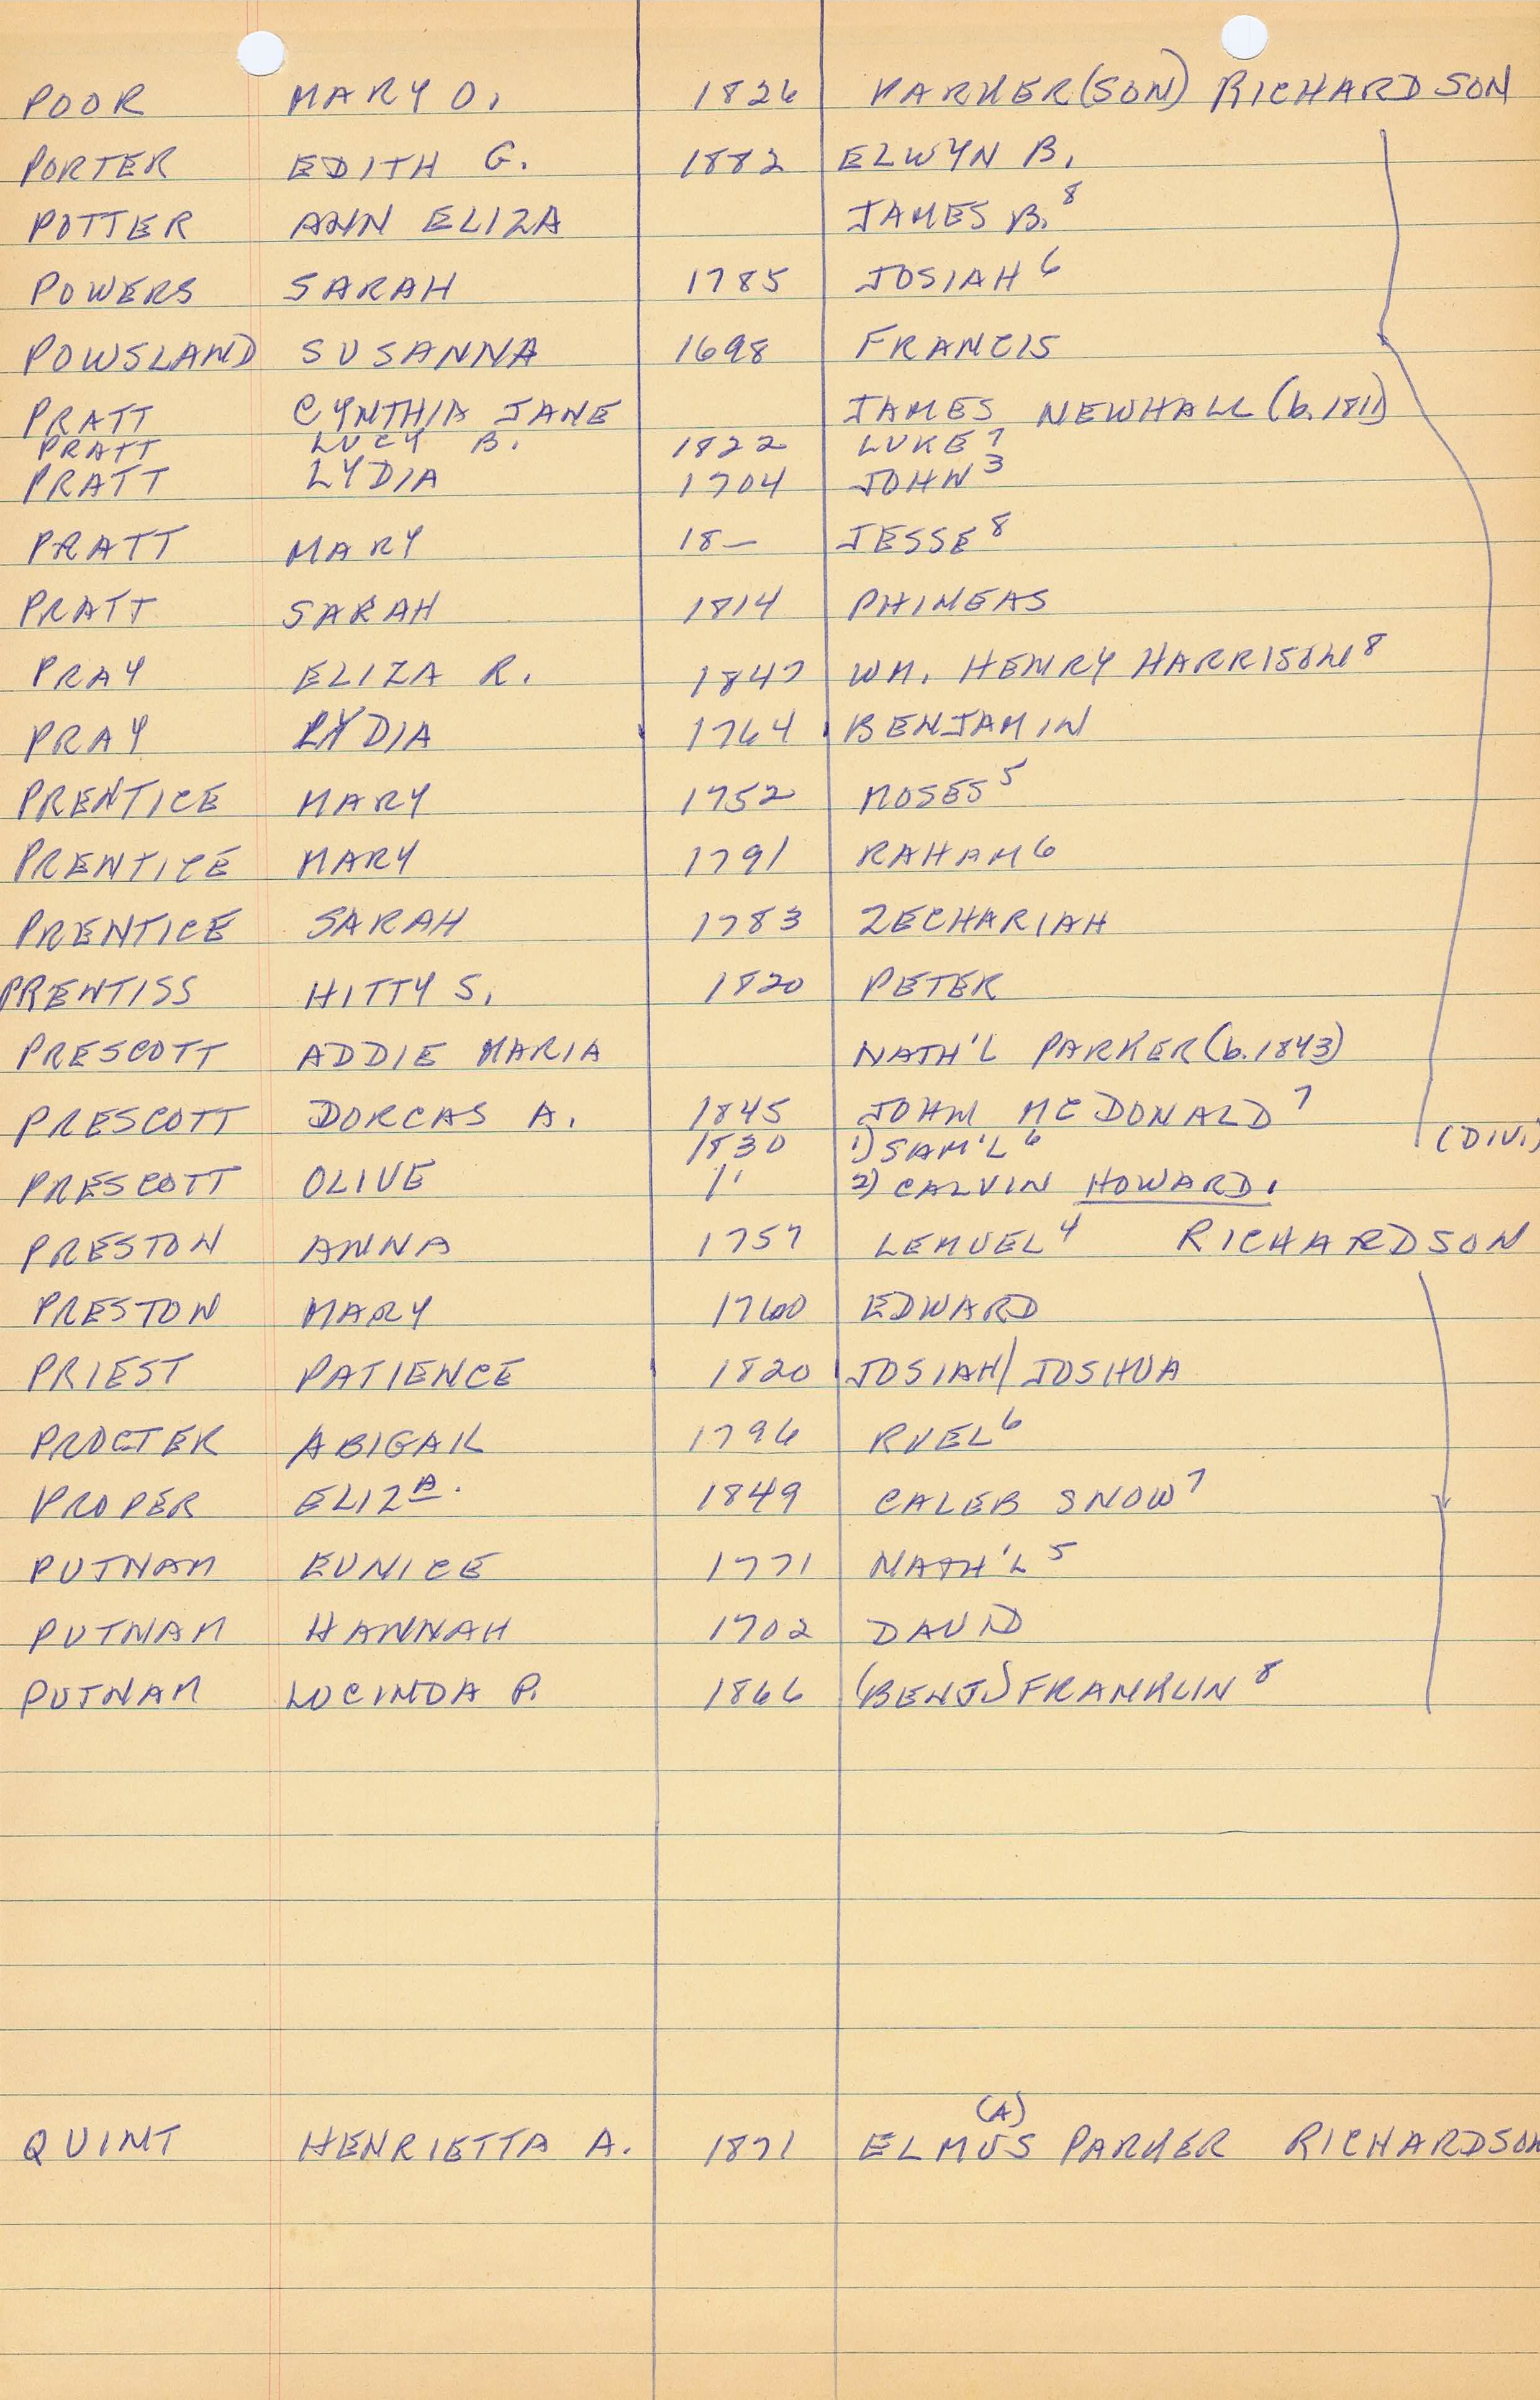 POOR MARY O. 1826 PARKER(SON) RICHARDSON
PORTER EDITH G. 1882 ELWYN B.
POTTER ANN ELIZA JAMES B.⁸
POWERS SARAH 1785 JOSIAH⁶
POWSLAND SUSANNA 1698 FRANCIS
PRATT CYNTHIA JANE JAMES NEWHALL (b. 1811)
PRATT LUCY B. 1822 LUKE⁷
PRATT LYDIA 1704 JOHN³
PRATT MARY 18— JESSE⁸
PRATT SARAH 1814 PHINEAS
PRAY ELIZA R. 1847 WM. HENRY HARRISON⁸
PRAY LYDIA 1764 BENJAMIN
PRENTICE MARY 1752 MOSES⁵
PRENTICE MARY 1791 RAHAM⁶
PRENTICE SARAH 1783 ZECHARIAH
PRENTISS HITTY S. 1820 PETER
PRESCOTT ADDIE MARIA NATH'L PARKER (b. 1843)
PRESCOTT DORCAS A. 1845 JOHN MCDONALD⁷
1830 1) SAM'L⁶ (DIV.)
PRESCOTT OLIVE 1' 2) CALVIN HOWARD.
PRESTON ANNA 1757 LEMUEL⁴ RICHARDSON
PRESTON MARY 1760 EDWARD
PRIEST PATIENCE 1820 JOSIAH/JOSHUA
PROCTER ABIGAIL 1796 RUEL⁶
PROPER ELIZᴬ. 1849 CALEB SNOW⁷
PUTNAM EUNICE 1771 NATH'L⁵
PUTNAM HANNAH 1702 DAVID
PUTNAM LUCINDA P. 1866 (BENJ.) FRANKLIN⁸
(A)
QUINT HENRIETTA A. 1871 ELMUS PARKER RICHARDSON